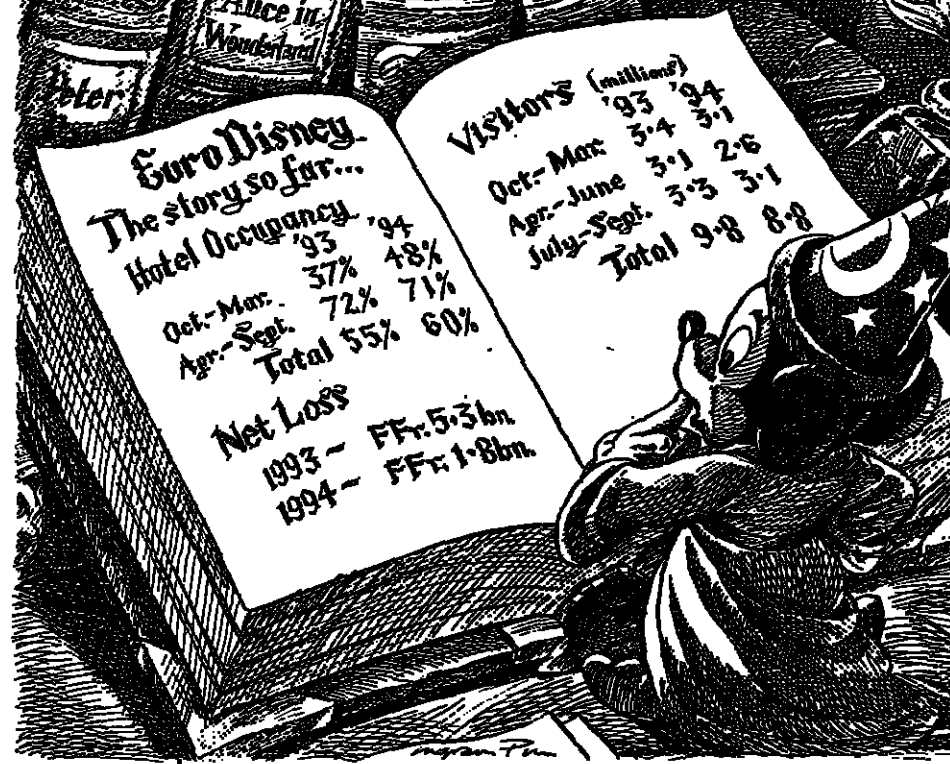 Alice in
Wonderland
Peter
Euro Disney
The story so far...
Hotel Occupancy
'93 '94
Oct.-Mar. 37% 48%
Apr.-Sept. 72% 71%
Total 55% 60%
Net Loss
1993 - FFr. 5·3bn.
1994 - FFr. 1·8bn.
Visitors (millions)
'93 '94
Oct.-Mar. 3·4 3·1
Apr.-June 3·1 2·6
July-Sept. 3·3 3·1
Total 9·8 8·8
Ingram Pinn